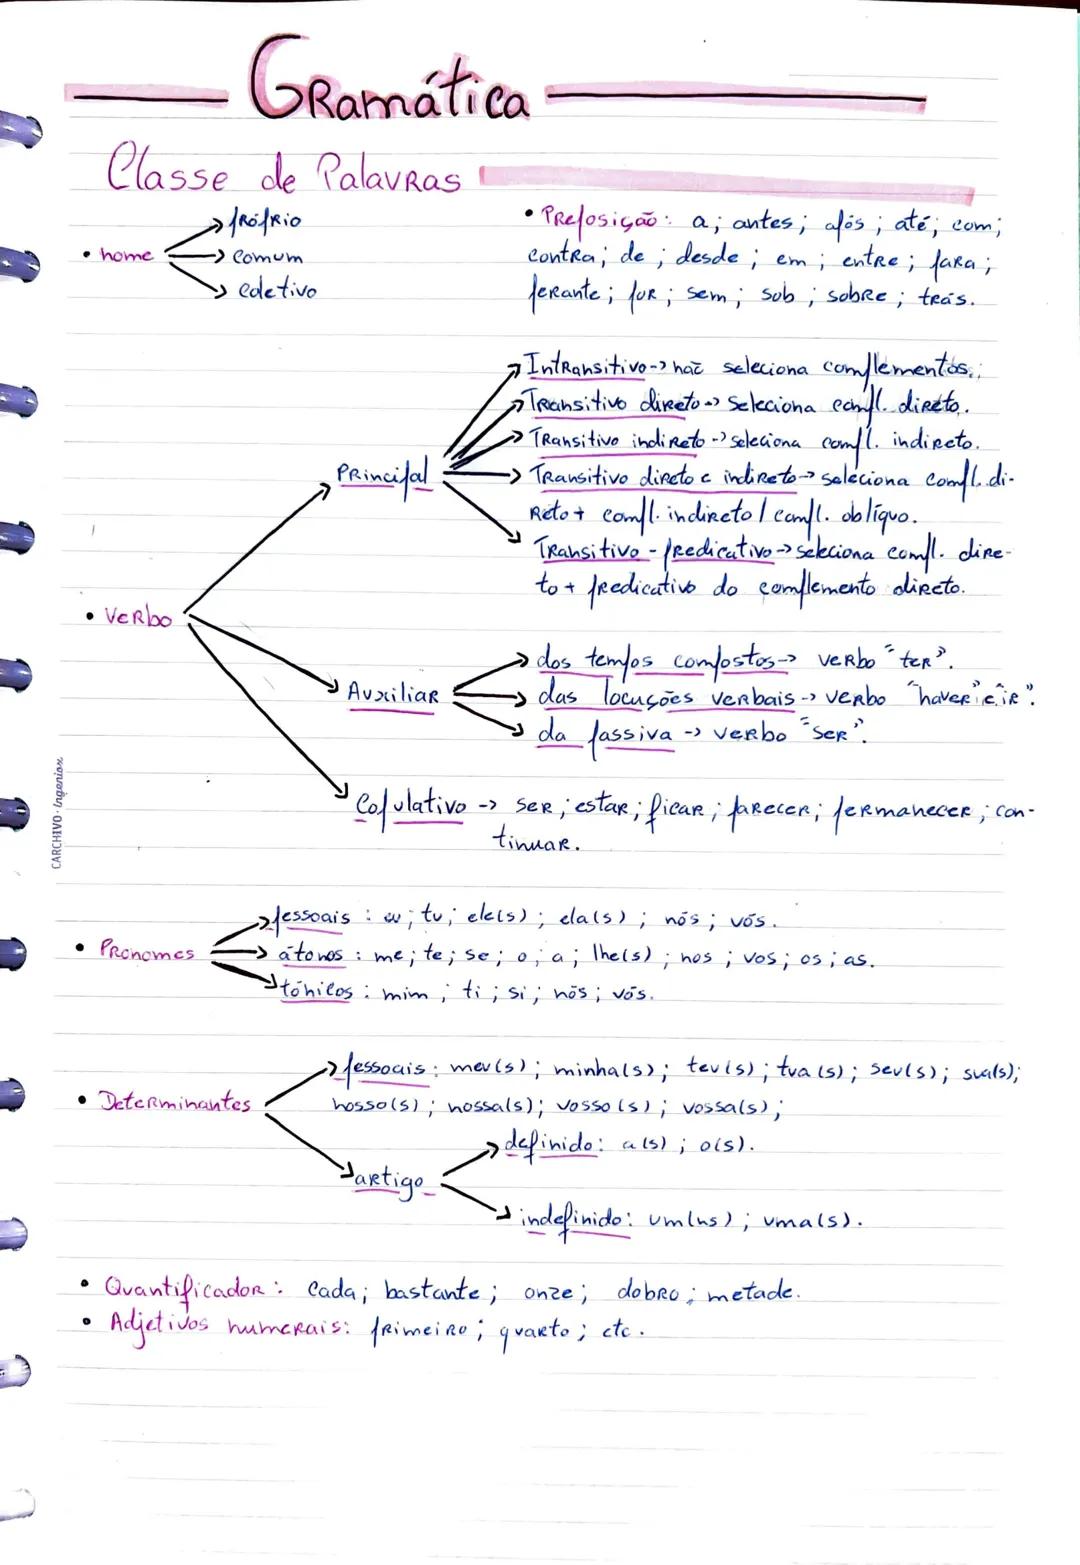 Gramática
Classe de Palavras
• nome
próprio
comum
coletivo
• Preposição: a; antes; após; até; com;
contra; de; desde; em; entre; para;
perante; por; sem; sob; sobre; trás.
• Verbo
Principal
Intransitivo -> não seleciona complementos.;
Transitivo direto -> seleciona compl. direto.
Transitivo indireto -> seleciona compl. indireto.
Transitivo direto e indireto -> seleciona compl. di-
reto + compl. indireto / compl. oblíquo.
Transitivo - predicativo -> seleciona compl. dire-
to + predicativo do complemento direto.
Auxiliar
dos tempos compostos -> verbo "ter".
das locuções verbais -> verbo "haver" e "ir".
da passiva -> verbo "ser".
Copulativo -> ser; estar; ficar; parecer; permanecer; con-
tinuar.
CARCHIVO · Ingeniox
• Pronomes
pessoais: eu; tu; ele(s); ela(s); nós; vós.
átonos: me; te; se; o; a; lhe(s); nos; vos; os; as.
tónicos: mim; ti; si; nós; vós.
• Determinantes
pessoais: meu(s); minha(s); teu(s); tua(s); seu(s); sua(s);
nosso(s); nossa(s); vosso(s); vossa(s);
artigo
definido: a(s); o(s).
indefinido: um(ns); uma(s).
• Quantificador: cada; bastante; onze; dobro; metade.
• Adjetivos numerais: primeiro; quarto; etc.